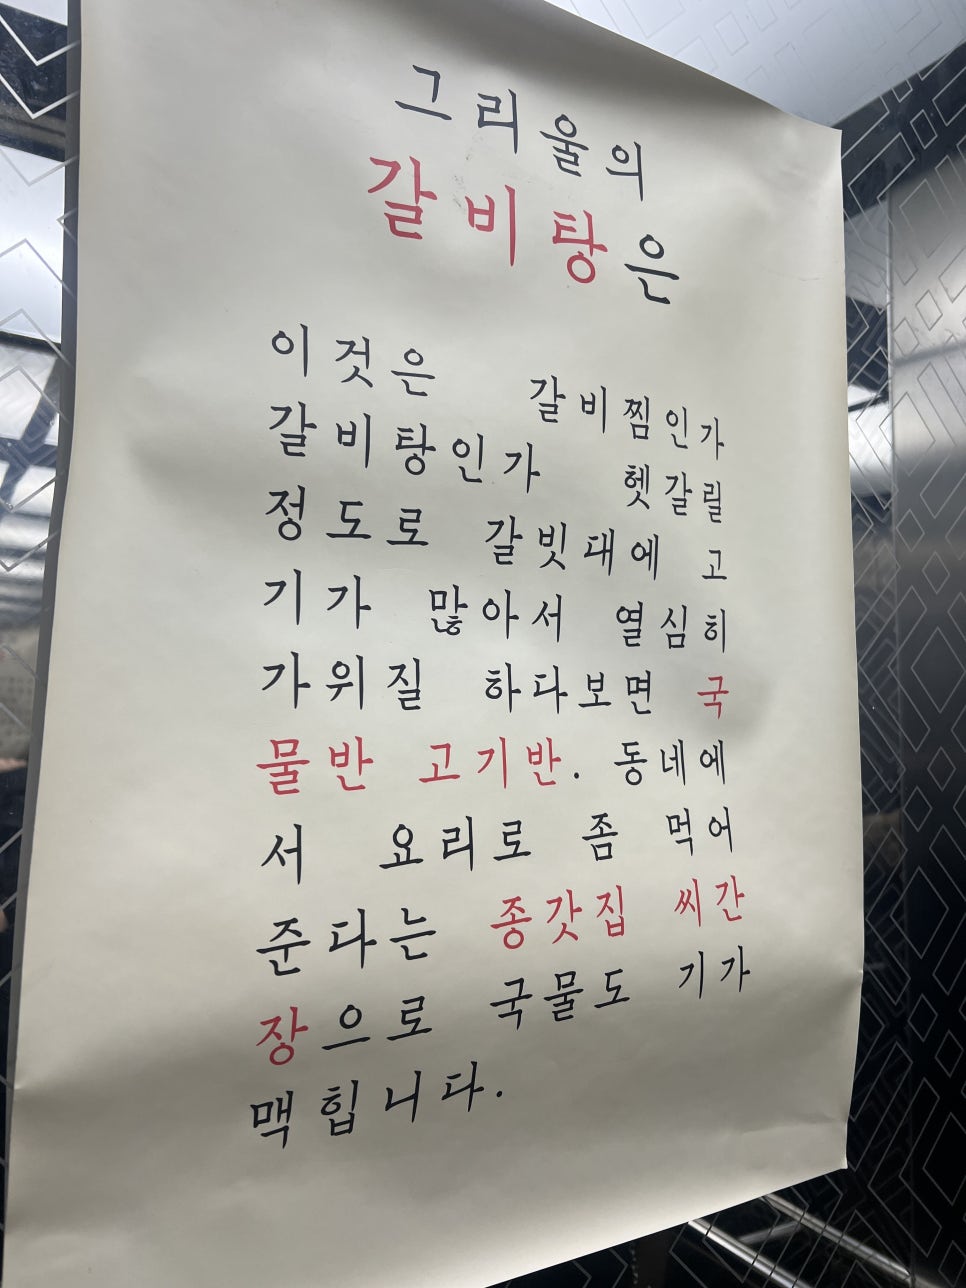 그리울의
갈비탕은
이것은 갈비찜인가
갈비탕인가 헷갈릴
정도로 갈빗대에 고
기가 많아서 열심히
가위질 하다보면 국
물반 고기반. 동네에
서 요리로 좀 먹어
준다는 종갓집 씨간
장으로 국물도 기가
맥힙니다.